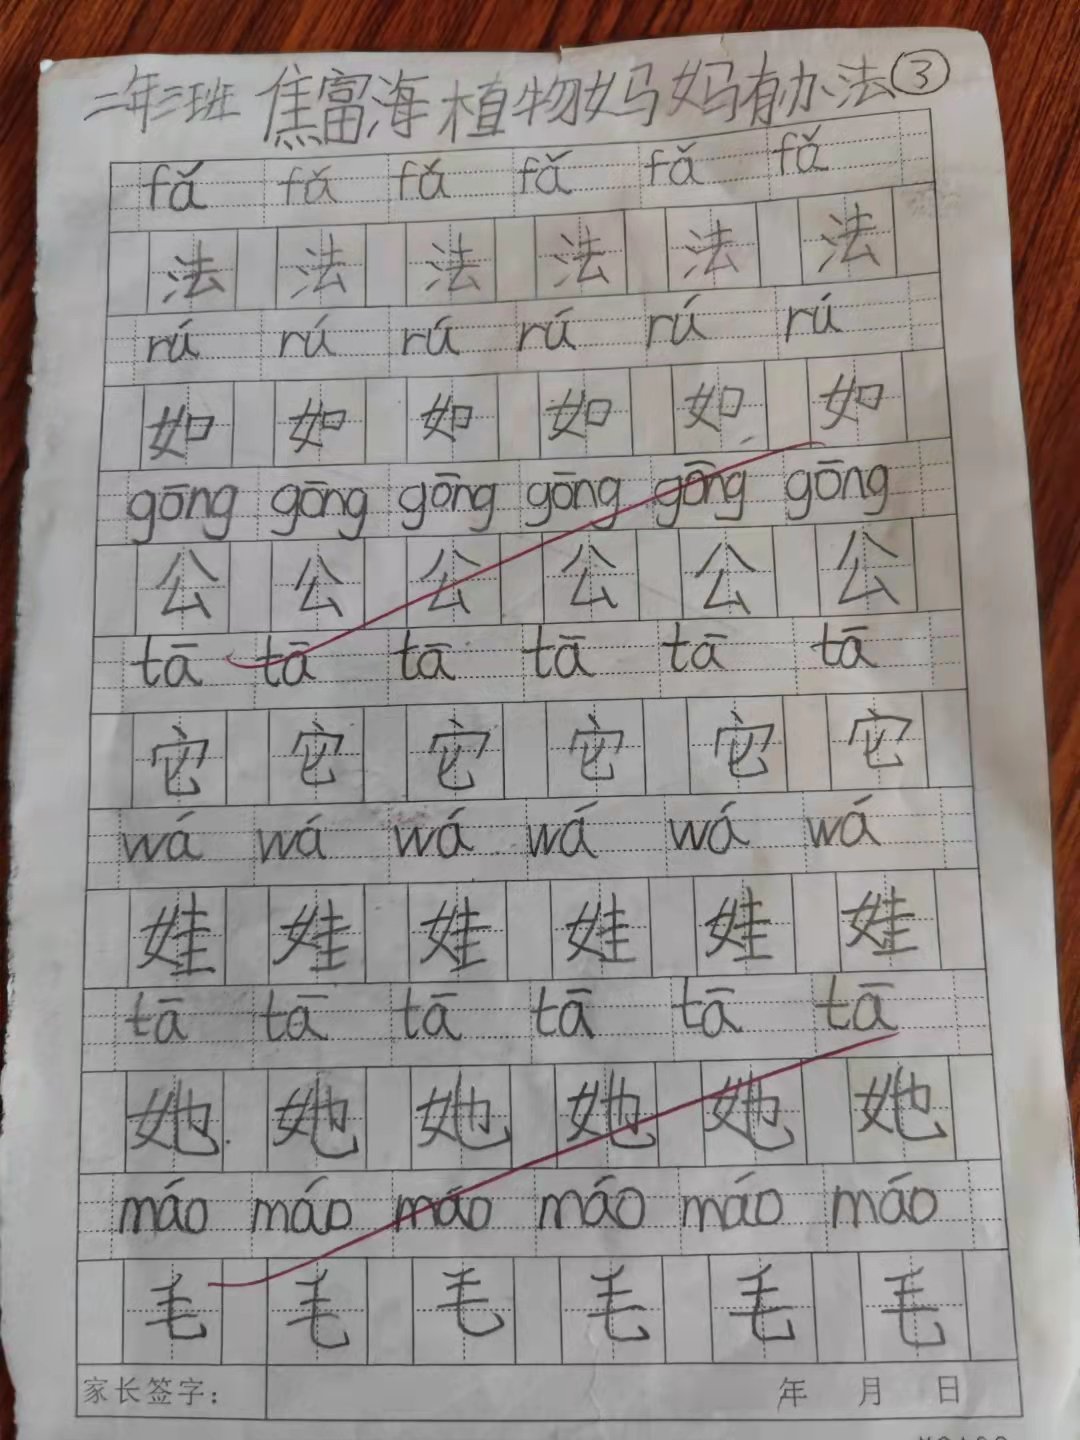 二年三班 焦富海 植物妈妈有办法③
fǎ fǎ fǎ fǎ fǎ fǎ
法 法 法 法 法 法
rú rú rú rú rú rú
如 如 如 如 如 如
gōng gōng gōng gōng gōng gōng
公 公 公 公 公 公
tā tā tā tā tā tā
它 它 它 它 它 它
wá wá wá wá wá wá
娃 娃 娃 娃 娃 娃
tā tā tā tā tā tā
她 她 她 她 她 她
máo máo máo máo máo máo
毛 毛 毛 毛 毛 毛
家长签字： 年 月 日